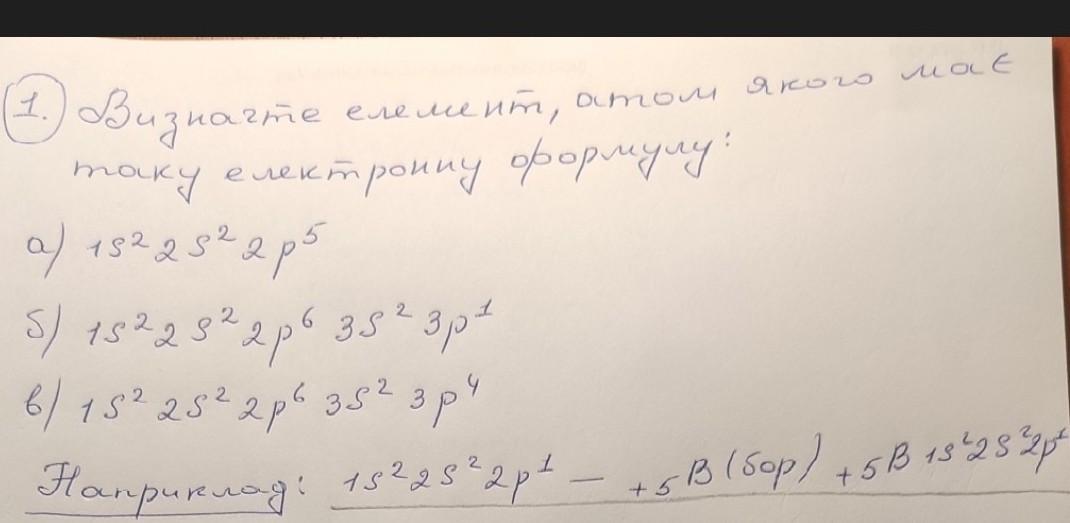 1. Визначте елемент, атом якого має
таку електронну формулу:
а) 1s² 2s² 2p⁵
б) 1s² 2s² 2p⁶ 3s² 3p¹
в) 1s² 2s² 2p⁶ 3s² 3p⁴
Наприклад: 1s² 2s² 2p¹ — +5B (бор) +5B 1s² 2s² 2p¹